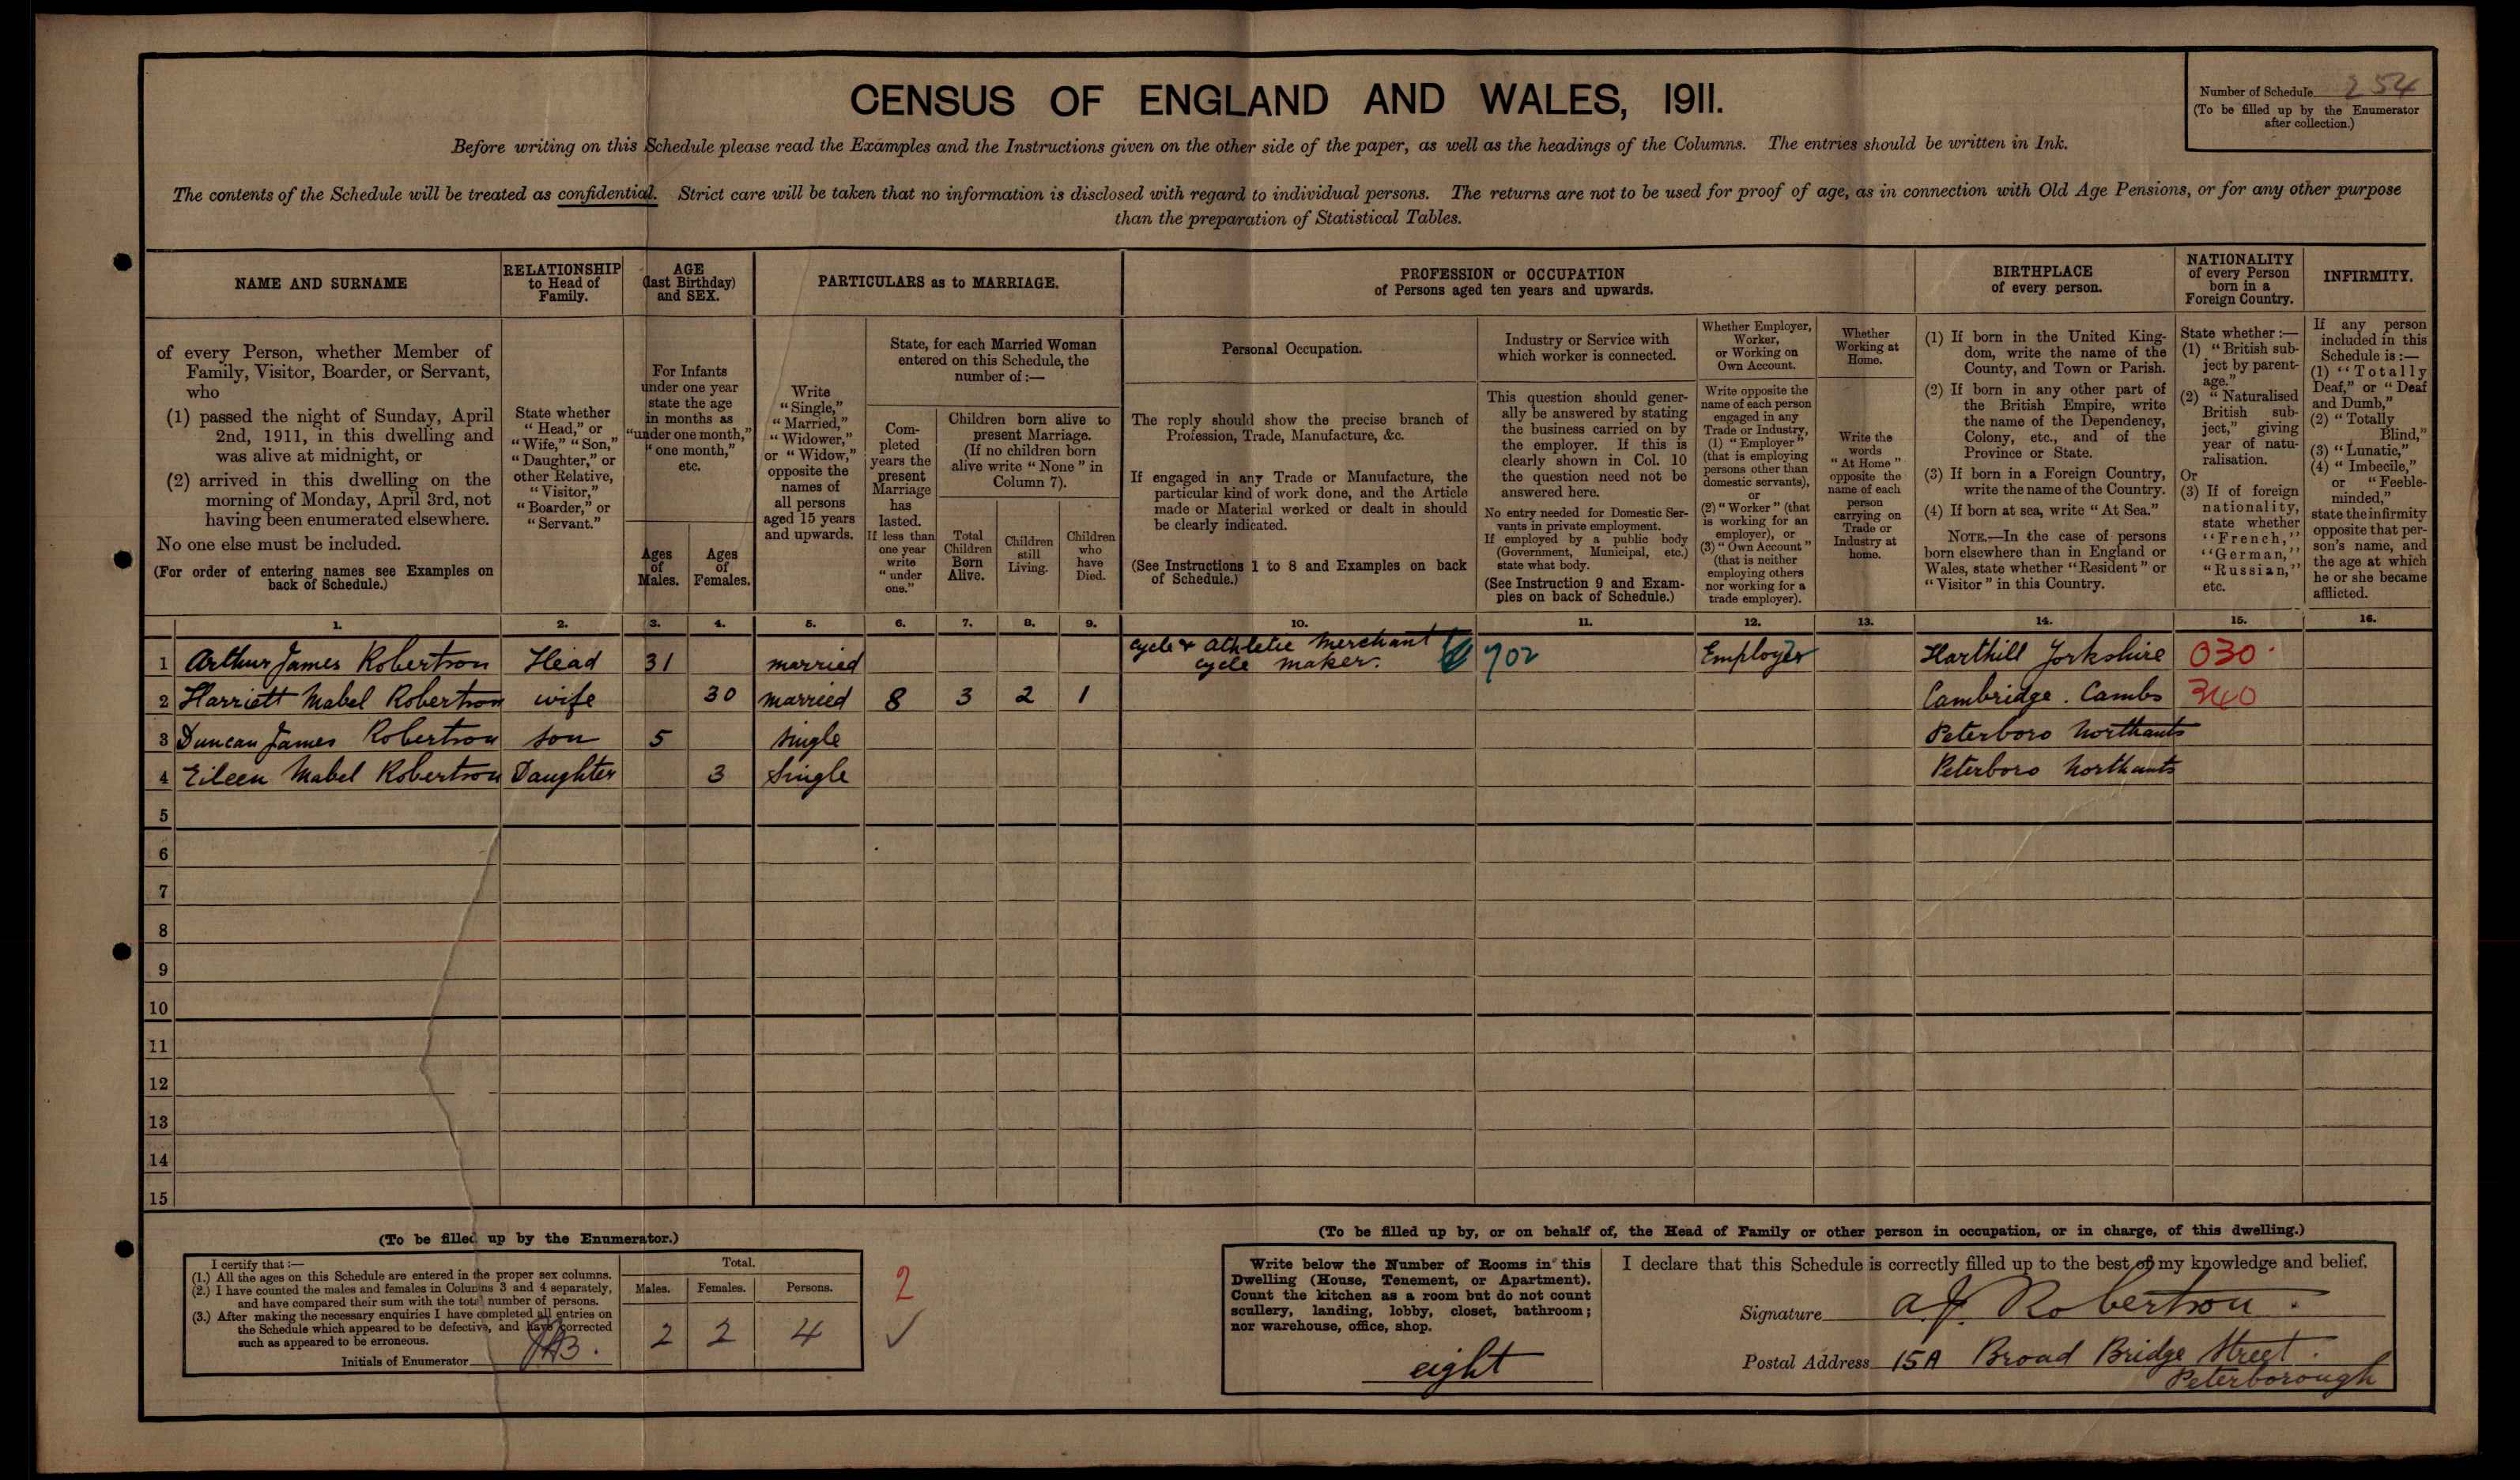 CENSUS OF ENGLAND AND WALES, 1911.
Number of Schedule 254
(To be filled up by the Enumerator
after collection.)
Before writing on this Schedule please read the Examples and the Instructions given on the other side of the paper, as well as the headings of the Columns. The entries should be written in Ink.
The contents of the Schedule will be treated as confidential. Strict care will be taken that no information is disclosed with regard to individual persons. The returns are not to be used for proof of age, as in connection with Old Age Pensions, or for any other purpose
than the preparation of Statistical Tables.
NAME AND SURNAME
of every Person, whether Member of
Family, Visitor, Boarder, or Servant,
who
(1) passed the night of Sunday, April
2nd, 1911, in this dwelling and
was alive at midnight, or
(2) arrived in this dwelling on the
morning of Monday, April 3rd, not
having been enumerated elsewhere.
No one else must be included.
(For order of entering names see Examples on
back of Schedule.)
RELATIONSHIP
to Head of
Family.
State whether
"Head," or
"Wife," "Son,"
"Daughter," or
other Relative,
"Visitor,"
"Boarder," or
"Servant."
AGE
(last Birthday)
and SEX.
For Infants
under one year
state the age
in months as
"under one month,"
"one month,"
etc.
Ages
of
Males.
Ages
of
Females.
PARTICULARS as to MARRIAGE.
Write
"Single,"
"Married,"
"Widower,"
or "Widow,"
opposite the
names of
all persons
aged 15 years
and upwards.
State, for each Married Woman
entered on this Schedule, the
number of :—
Com-
pleted
years the
present
Marriage
has
lasted.
If less than
one year
write
"under
one."
Children born alive to
present Marriage.
(If no children born
alive write "None" in
Column 7).
Total
Children
Born
Alive.
Children
still
Living.
Children
who
have
Died.
PROFESSION or OCCUPATION
of Persons aged ten years and upwards.
Personal Occupation.
The reply should show the precise branch of
Profession, Trade, Manufacture, &c.
If engaged in any Trade or Manufacture, the
particular kind of work done, and the Article
made or Material worked or dealt in should
be clearly indicated.
(See Instructions 1 to 8 and Examples on back
of Schedule.)
Industry or Service with
which worker is connected.
This question should gener-
ally be answered by stating
the business carried on by
the employer. If this is
clearly shown in Col. 10
the question need not be
answered here.
No entry needed for Domestic Ser-
vants in private employment.
If employed by a public body
(Government, Municipal, etc.)
state what body.
(See Instruction 9 and Exam-
ples on back of Schedule.)
Whether Employer,
Worker,
or Working on
Own Account.
Write opposite the
name of each person
engaged in any
Trade or Industry,
(1) "Employer"
(that is employing
persons other than
domestic servants),
or
(2) "Worker" (that
is working for an
employer), or
(3) "Own Account"
(that is neither
employing others
nor working for a
trade employer).
Whether
Working at
Home.
Write the
words
"At Home"
opposite the
name of each
person
carrying on
Trade or
Industry at
home.
BIRTHPLACE
of every person.
(1) If born in the United King-
dom, write the name of the
County, and Town or Parish.
(2) If born in any other part of
the British Empire, write
the name of the Dependency,
Colony, etc., and of the
Province or State.
(3) If born in a Foreign Country,
write the name of the Country.
(4) If born at sea, write "At Sea."
NOTE.—In the case of persons
born elsewhere than in England or
Wales, state whether "Resident" or
"Visitor" in this Country.
NATIONALITY
of every Person
born in a
Foreign Country.
State whether :—
(1) "British sub-
ject by parent-
age."
(2) "Naturalised
British sub-
ject," giving
year of natu-
ralisation.
Or
(3) If of foreign
nationality,
state whether
"French,"
"German,"
"Russian,"
etc.
INFIRMITY.
If any person
included in this
Schedule is :—
(1) "Totally
Deaf," or "Deaf
and Dumb,"
(2) "Totally
Blind,"
(3) "Lunatic,"
(4) "Imbecile,"
or "Feeble-
minded,"
state the infirmity
opposite that per-
son's name, and
the age at which
he or she became
afflicted.
1. 2. 3. 4. 5. 6. 7. 8. 9. 10. 11. 12. 13. 14. 15. 16.
1 Arthur James Robertson Head 31 married cycle & Athletic Merchant cycle maker. 702 Employer Harthill Yorkshire 030
2 Harriett Mabel Robertson wife 30 married 8 3 2 1 Cambridge. Cambs 340
3 Duncan James Robertson son 5 single Peterboro Northants
4 Eileen Mabel Robertson Daughter 3 Single Peterboro Northants
5
6
7
8
9
10
11
12
13
14
15
(To be filled up by the Enumerator.)
I certify that :—
(1.) All the ages on this Schedule are entered in the proper sex columns.
(2.) I have counted the males and females in Columns 3 and 4 separately,
and have compared their sum with the total number of persons.
(3.) After making the necessary enquiries I have completed all entries on
the Schedule which appeared to be defective, and have corrected
such as appeared to be erroneous.
Initials of Enumerator
Total.
Males. Females. Persons.
2 2 4
2
(To be filled up by, or on behalf of, the Head of Family or other person in occupation, or in charge, of this dwelling.)
Write below the Number of Rooms in this
Dwelling (House, Tenement, or Apartment).
Count the kitchen as a room but do not count
scullery, landing, lobby, closet, bathroom;
nor warehouse, office, shop.
eight
I declare that this Schedule is correctly filled up to the best of my knowledge and belief.
Signature A. J. Robertson.
Postal Address 15A Broad Bridge Street.
Peterborough